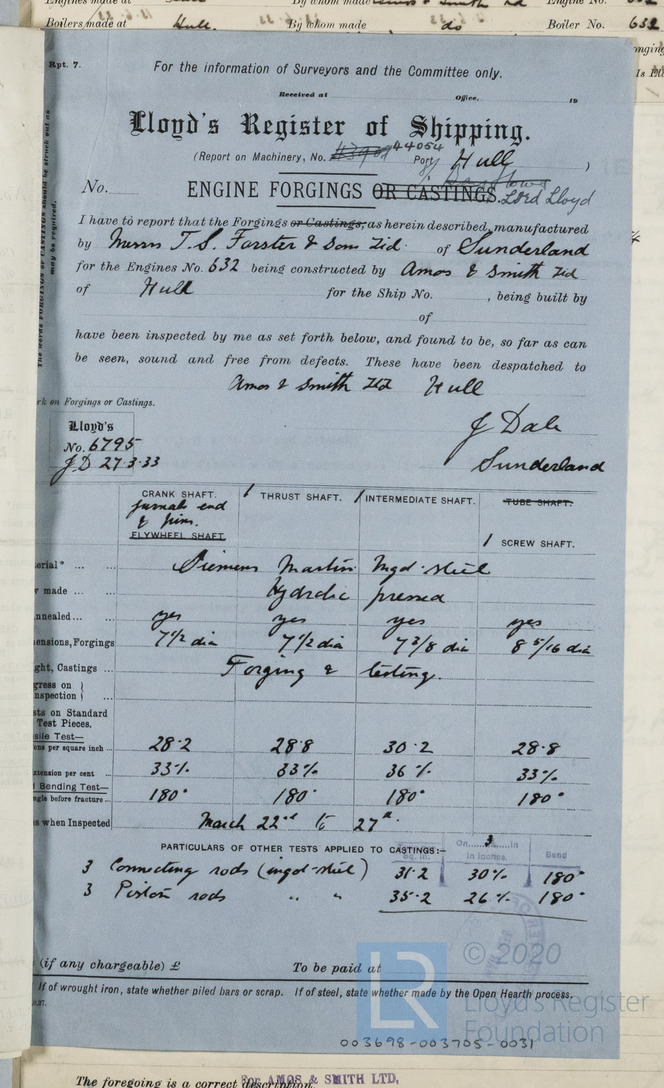 Boilers made at Hull. By whom made do Boiler No. 632
Rpt. 7.
For the information of Surveyors and the Committee only.
Received at Office, 19
Lloyd's Register of Shipping.
(Report on Machinery, No. 44054 Port Hull )
No. ENGINE FORGINGS OR CASTINGS. Lord Lloyd
I have to report that the Forgings or Castings, as herein described, manufactured
by Messrs T. S. Forster & Sons Ltd. of Sunderland
for the Engines No. 632 being constructed by Amos & Smith Ltd
of Hull for the Ship No. , being built by
of
have been inspected by me as set forth below, and found to be, so far as can
be seen, sound and free from defects. These have been despatched to
Amos & Smith Ltd Hull
rk on Forgings or Castings.
Lloyd's
No. 6795
J D 27.3.33
J Dale
Sunderland
The words FORGINGS or CASTINGS should be struck out as
may be required.
CRANK SHAFT. 1 THRUST SHAFT. 1 INTERMEDIATE SHAFT. TUBE SHAFT.
journal end
& pins.
FLYWHEEL SHAFT 1 SCREW SHAFT.
terial* ... ... Siemens Martin Ingd. steel
w made ... ... Hydrolic pressed
nnealed ... ... yes yes yes yes
ensions, Forgings 7 1/2 dia 7 1/2 dia 7 3/8 dia 8 5/16 dia
ght, Castings ... Forging & testing.
gress on }
nspection } ...
sts on Standard
Test Pieces.
sile Test—
ons per square inch ... 28.2 28.8 30.2 28.8
xtension per cent 33% 33% 36% 33%
d Bending Test—
ngle before fracture ... 180° 180° 180° 180°
s when Inspected March 22nd to 27th.
PARTICULARS OF OTHER TESTS APPLIED TO CASTINGS:—
On 3 in
Sq. in. in inches. Bend
3 Connecting rods (ingot steel) 31.2 30% 180°
3 Piston rods " " 35.2 26% 180°
© 2020
(if any chargeable) £ To be paid at
If of wrought iron, state whether piled bars or scrap. If of steel, state whether made by the Open Hearth process.
LR
Lloyd's Register
Foundation
003698-003705-0031
The foregoing is a correct description.
For AMOS & SMITH LTD,